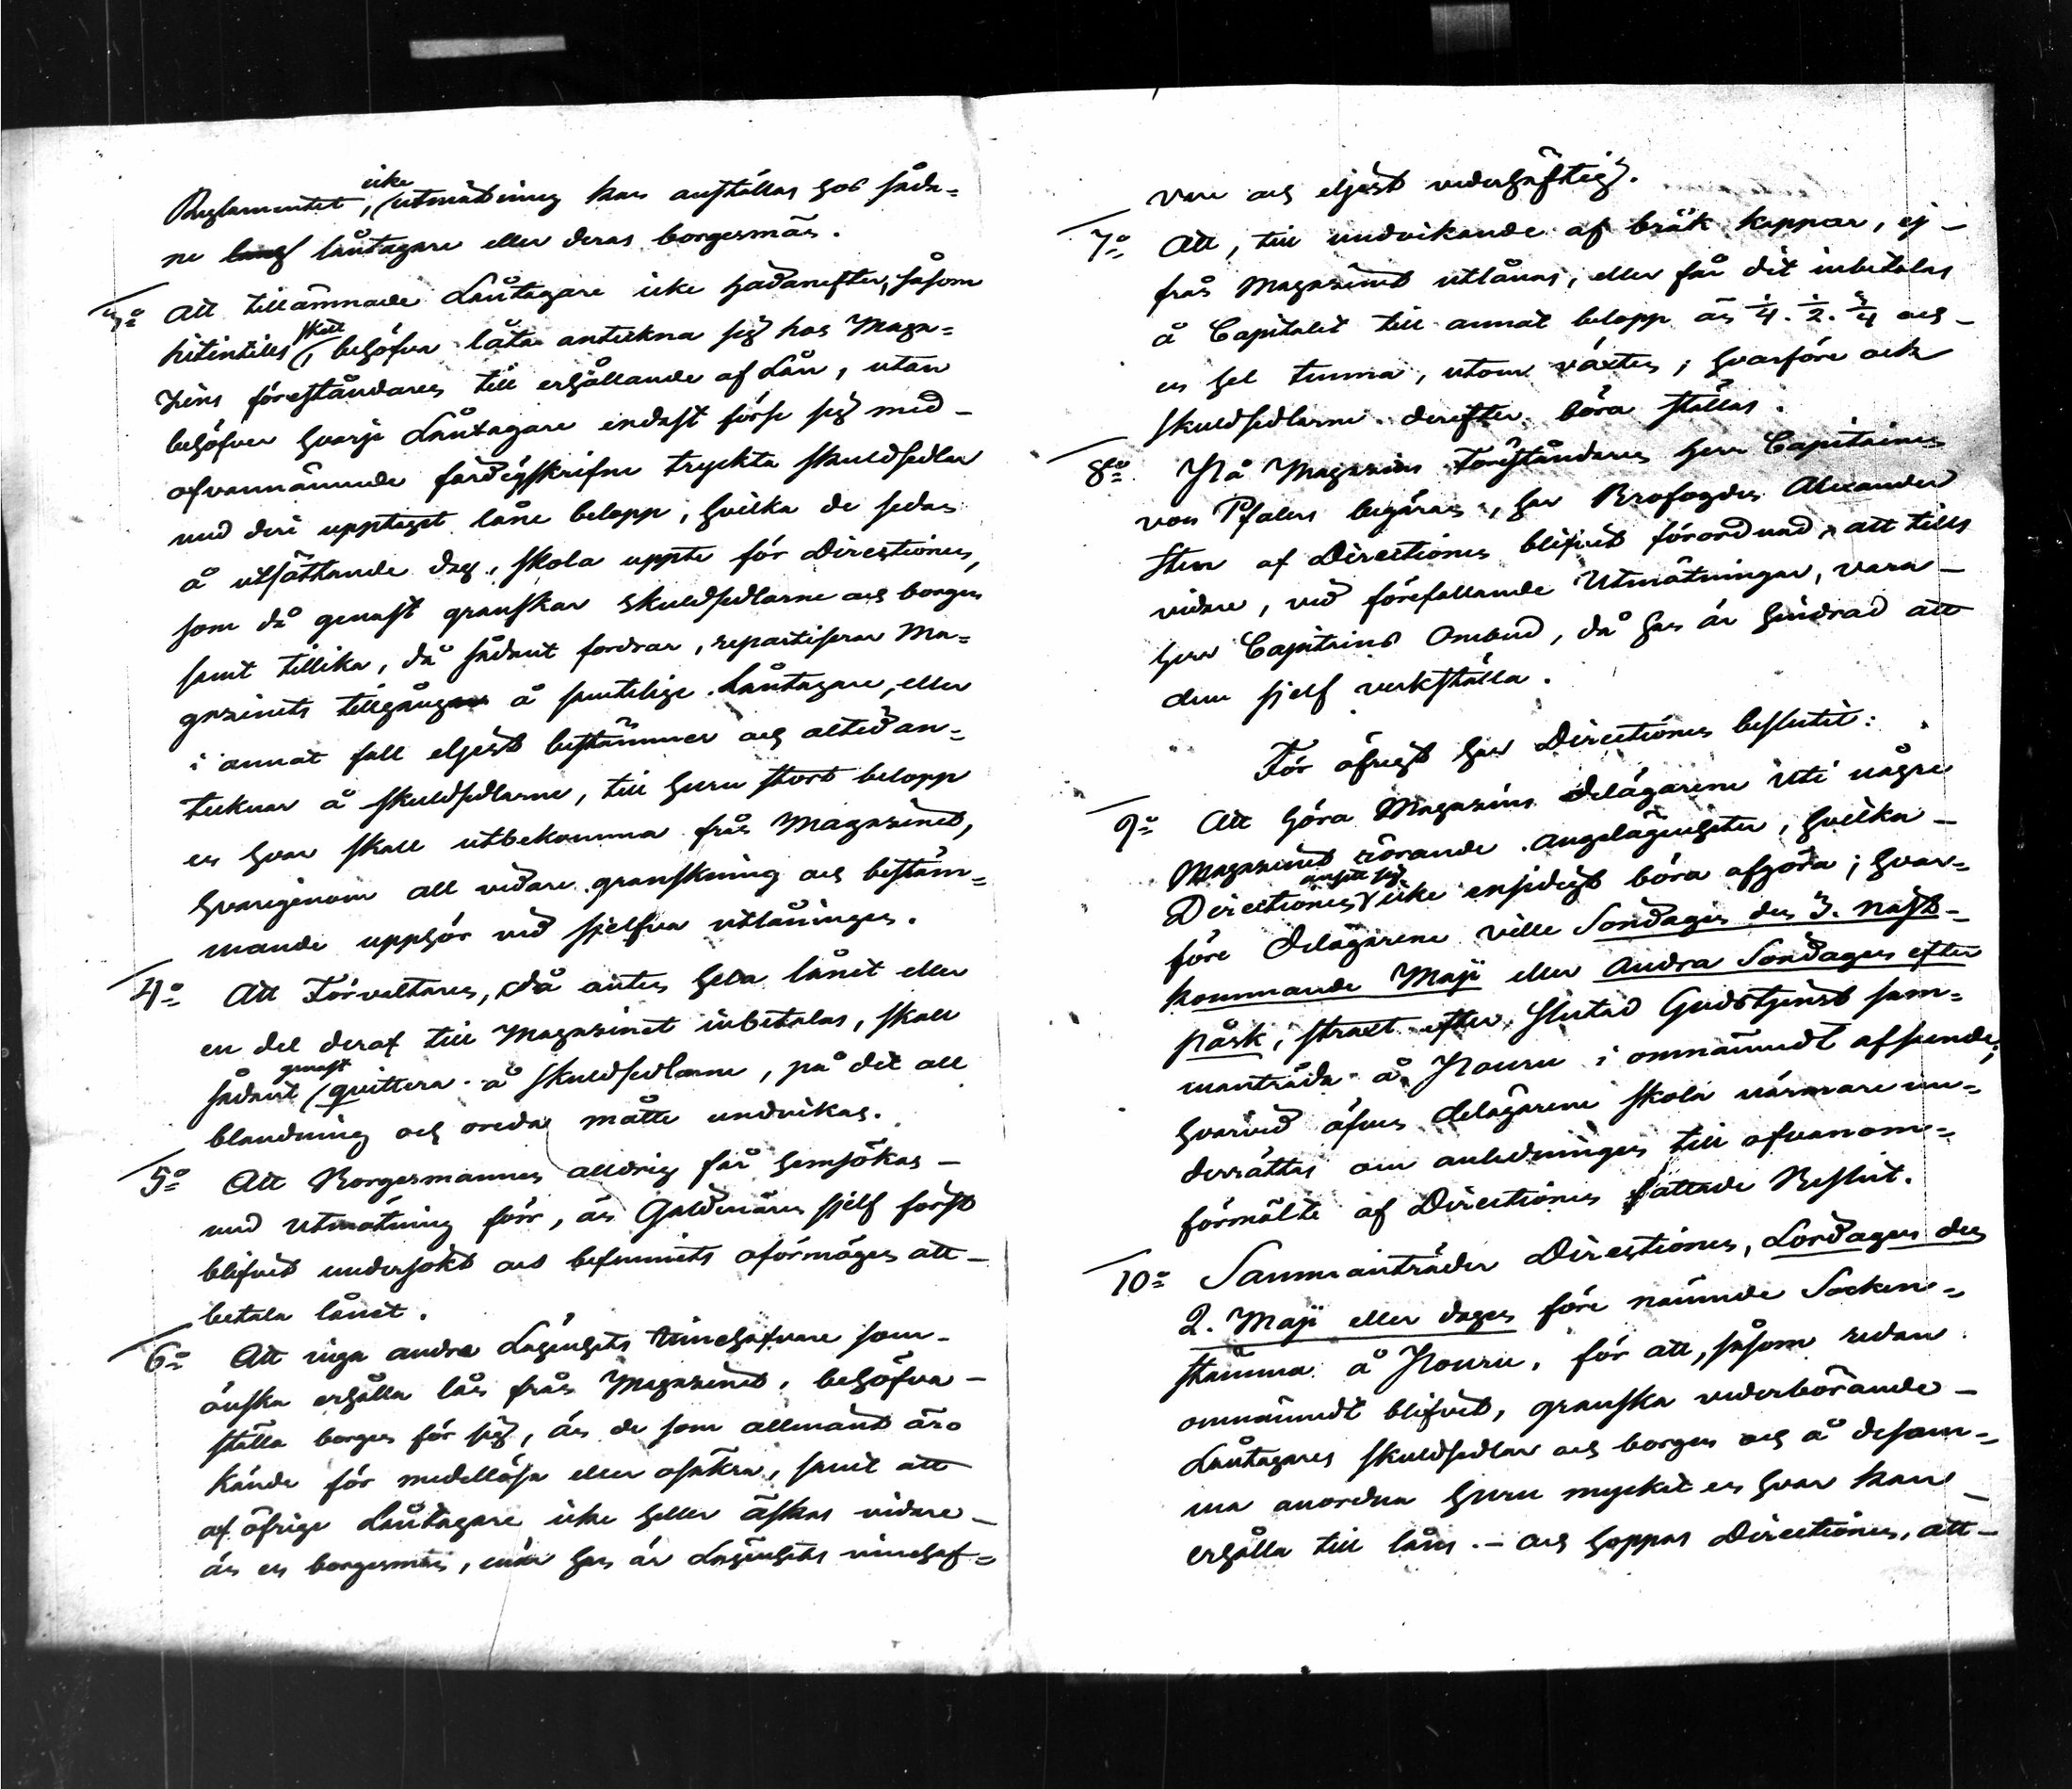 Reglamentet, icke utmätning kan anställas hos såda-
ne låntagare eller deras borgesmän.
3o Att tillämnade Låntagare icke hädanefter, såsom
hitintills skett, behöfva låta anteckna sig hos Maga-
zins föreståndaren till erhållande af Lån, utan
behöfver hvarje Låntagare endast förse sig med
ofvannämnde färdigskrifne tryckta skuldsedlar
med deri upptaget låne belopp, hvilka de sedan
å utsättande dag, skola uppte för Directionen,
som då genast granskar skuldsedlarne och borgen
samt tillika, då sådant fordras, repartiserar Ma-
gazinets tillgångar å samtelige Låntagare, eller
i annat fall eljest bestämmer och altid an-
teknar å skuldsedlarne, till huru stort belopp
en hvar skall utbekomma från Magazinet,
hvarigenom all vidare granskning och bestäm-
mande upphör vid sjelfva utlåningen.
4o Att Förvaltaren, då antin hela lånet eller
en del deraf till Magazinet inbetalas, skall
sådant genast quittera å skuldsedlarne, på det all
blandning och oreda måtte undvikas.
5o Att Borgesmannen aldrig får hemsökas
med Utmätning förr, än Gäldenären sjelf först
blifvit undersökt och befunnits oförmögen att
betala lånet.
6o Att inga andra Lägenhets innehafvare som
önska erhålla lån från Magazinet, behöfva
ställa borgen för sig, än de som allmänt äro
kände för medellösa eller osäkra, samt att
af öfrige Låntagare icke heller äskas vidare
än en borgesman, enär han är Lägenhets innehaf-
vare och eljest vederhäftig.
7o Att, till undvikande af bråk kappar, ej
från Magazinet utlånas, eller får dit inbetalas
å Capitalet till annat belopp än 1/4. 1/2. 3/4 och
en hel tunna, utom växten; hvarföre ock
skuldsedlarne derefter böra ställas.
8o På Magazins Föreståndaren Herr Capitainen
von Pfalers begäran, har Brofogden Alexander
Sten af Directionen blifvit förordnad, att tills
vidare, vid förefallande Utmätningar, vara
Herr Capitains Ombud, då han är hindrad att
dem sjelf verkställa.
För öfrigt har Directionen beslutit:
9o Att höra Magazins delägarene uti några
Magazinet rörande angelägenheter, hvilka
Directionen ansett sig icke ensidigt böra afgöra; hvar-
före Delägarene ville Söndagen den 3. näst-
kommande Maji eller Andra Söndagen efter
påsk, straxt efter slutad Gudstjenst sam-
manträda å Nouru i omnämndt afseende;
hvarvid äfven delägarene skola närmare un-
derrättas om anledningen till ofvanom-
förmälte af Directionen fattade Beslut.
10o Sammanträder Directionen, Lördagen den
2. Maji eller dagen före nämnde Socken-
stämma å Nouru, för att, såsom redan
omnämndt blifvit, granska vederbörande
Låntagares skuldsedlar och borgen och å desam-
ma anordna huru mycket en hvar kan
erhålla till låns. – och hoppas Directionen, att